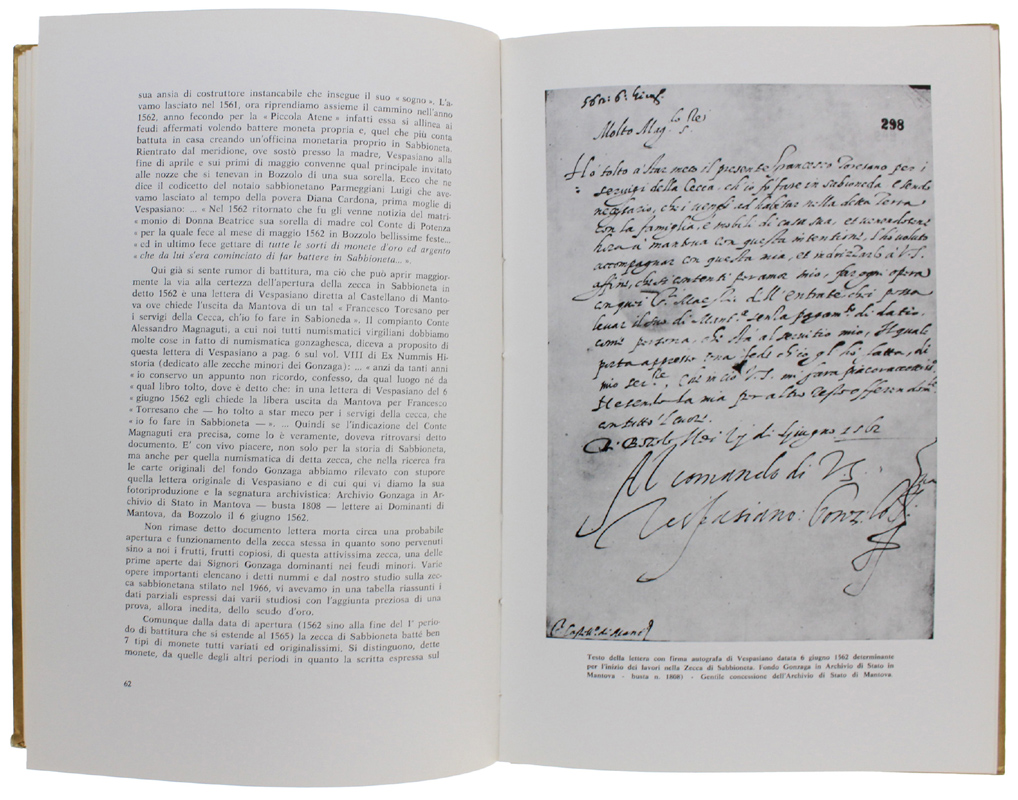 sua ansia di costruttore instancabile che insegue il suo « sogno ». L'a-
vamo lasciato nel 1561, ora riprendiamo assieme il cammino nell'anno
1562, anno fecondo per la « Piccola Atene » infatti essa si allinea ai
feudi affermati volendo battere moneta propria e, quel che più conta
battuta in casa creando un'officina monetaria proprio in Sabbioneta.
Rientrato dal meridione, ove sostò presso la madre, Vespasiano alla
fine di aprile e sui primi di maggio convenne qual principale invitato
alle nozze che si tenevan in Bozzolo di una sua sorella. Ecco che ne
dice il codicetto del notaio sabbionetano Parmeggiani Luigi che ave-
vamo lasciato al tempo della povera Diana Cardona, prima moglie di
Vespasiano: ... « Nel 1562 ritornato che fu gli venne notizia del matri-
« monio di Donna Beatrice sua sorella di madre col Conte di Potenza
« per la quale fece al mese di maggio 1562 in Bozzolo bellissime feste...
« ed in ultimo fece gettare di tutte le sorti di monete d'oro ed argento
« che da lui s'era cominciato di far battere in Sabbioneta... ».
Qui già si sente rumor di battitura, ma ciò che può aprir maggior-
mente la via alla certezza dell'apertura della zecca in Sabbioneta in
detto 1562 è una lettera di Vespasiano diretta al Castellano di Manto-
va ove chiede l'uscita da Mantova di un tal « Francesco Toresano per
i servigi della Cecca, ch'io fo fare in Sabioneda ». Il compianto Conte
Alessandro Magnaguti, a cui noi tutti numismatici virgiliani dobbiamo
molte cose in fatto di numismatica gonzaghesca, diceva a proposito di
questa lettera di Vespasiano a pag. 6 sul vol. VIII di Ex Nummis Hi-
storia (dedicato alle zecche minori dei Gonzaga): ... « anzi da tanti anni
« io conservo un appunto non ricordo, confesso, da qual luogo né da
« qual libro tolto, dove è detto che: in una lettera di Vespasiano del 6
« giugno 1562 egli chiede la libera uscita da Mantova per Francesco
« Torresano che — ho tolto a star meco per i servigi della cecca, che
« io fo fare in Sabbioneta —». ... Quindi se l'indicazione del Conte
Magnaguti era precisa, come lo è veramente, doveva ritrovarsi detto
documento. E' con vivo piacere, non solo per la storia di Sabbioneta,
ma anche per quella numismatica di detta zecca, che nella ricerca fra
le carte originali del fondo Gonzaga abbiamo rilevato con stupore
quella lettera originale di Vespasiano e di cui qui vi diamo la sua
fotoriproduzione e la segnatura archivistica: Archivio Gonzaga in Ar-
chivio di Stato in Mantova — busta 1808 — lettere ai Dominanti di
Mantova, da Bozzolo il 6 giugno 1562.
Non rimase detto documento lettera morta circa una probabile
apertura e funzionamento della zecca stessa in quanto sono pervenuti
sino a noi i frutti, frutti copiosi, di questa attivissima zecca, una delle
prime aperte dai Signori Gonzaga dominanti nei feudi minori. Varie
opere importanti elencano i detti nummi e dal nostro studio sulla zec-
ca sabbionetana stilato nel 1966, vi avevamo in una tabella riassunti i
dati parziali espressi dai varii studiosi con l'aggiunta preziosa di una
prova, allora inedita, dello scudo d'oro.
Comunque dalla data di apertura (1562 sino alla fine del 1° perio-
do di battitura che si estende al 1565) la zecca di Sabbioneta batté ben
7 tipi di monete tutti variati ed originalissimi. Si distinguono, dette
monete, da quelle degli altri periodi in quanto la scritta espressa sul
62
298
Molto Mag.
Ho tolto a star meco il presente Francesco Toresano per i
servigi della Cecca, ch'io fo fare in Sabioneda
necessario, che
con la famiglia, e mobili di casa sua
con questa
con questa mia
per amor mio, far ogni opera
dell'entrate
come persona, che stà al servitio mio
mia per altro
Al comando di V.S.
Vespasiano Gonzaga
Testo della lettera con firma autografa di Vespasiano datata 6 giugno 1562 determinante
per l'inizio dei lavori nella Zecca di Sabbioneta. Fondo Gonzaga in Archivio di Stato in
Mantova - busta n. 1808) - Gentile concessione dell'Archivio di Stato di Mantova.